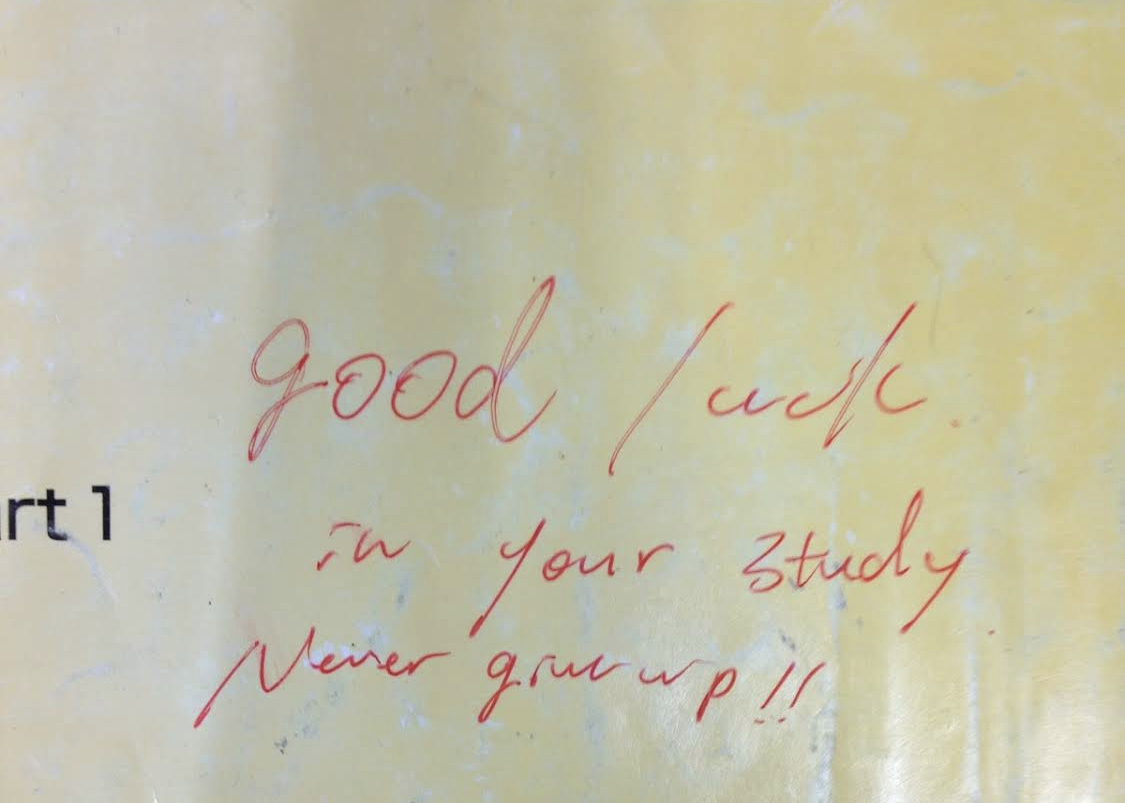 good luck.
art 1
in your study.
Never give up!!